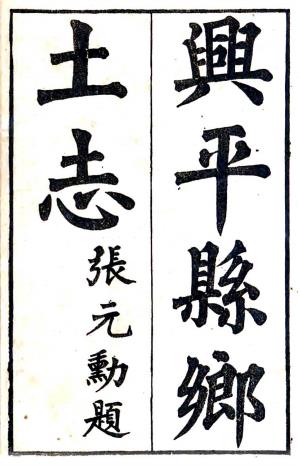 興平縣鄉
土志
張元勳題